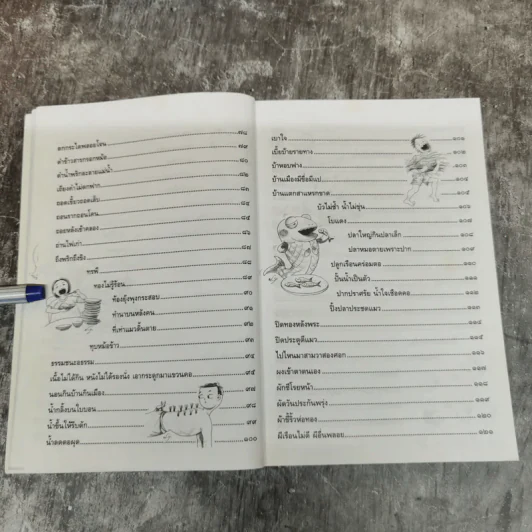 ตกกระไดพลอยโจน ๗๘
ตำข้าวสารกรอกหม้อ ๗๙
ตำน้ำพริกละลายแม่น้ำ ๘๐
เถียงคำไม่ตกฟาก ๘๑
ถอดเขี้ยวถอดเล็บ ๘๒
ถอนรากถอนโคน ๘๔
ถอยหลังเข้าคลอง ๘๕
ถ่านไฟเก่า
ถึงพริกถึงขิง
ทรพี
ทองไม่รู้ร้อน
ท้องยุ้งพุงกระสอบ ๙๐
ทำนาบนหลังคน ๙๑
ที่เท่าแมวดิ้นตาย ๙๒
ทุบหม้อข้าว ๙๓
ธรรมชนะอธรรม ๙๔
เนื้อไม่ได้กิน หนังไม่ได้รองนั่ง เอากระดูกมาแขวนคอ ๙๕
นอนกินบ้านกินเมือง
น้ำกลิ้งบนใบบอน
น้ำขึ้นให้รีบตัก ๙๙
น้ำลดตอผุด ๑๐๐
เบาใจ ๑๐๑
เบี้ยบ้ายรายทาง ๑๐๒
บ้าหอบฟาง ๑๐๓
บ้านเมืองมีขื่อมีแป ๑๐๔
บ้านแตกสาแหรกขาด ๑๐๕
บัวไม่ช้ำ น้ำไม่ขุ่น ๑๐๖
ใบแดง ๑๐๗
ปลาใหญ่กินปลาเล็ก ๑๐๘
ปลาหมอตายเพราะปาก ๑๐๙
ปลูกเรือนคร่อมตอ ๑๑๐
ปั้นน้ำเป็นตัว ๑๑๑
ปากปราศรัย น้ำใจเชือดคอ ๑๑๒
ปิ้งปลาประชดแมว ๑๑๓
ปิดทองหลังพระ ๑๑๔
ปิดประตูตีแมว ๑๑๕
ไปไหนมาสามวาสองศอก ๑๑๖
ผงเข้าตาตนเอง ๑๑๗
ผักชีโรยหน้า ๑๑๘
ผัดวันประกันพรุ่ง ๑๑๙
ผ้าขี้ริ้วห่อทอง ๑๒๐
ผีเรือนไม่ดี ผีอื่นพลอย ๑๒๑